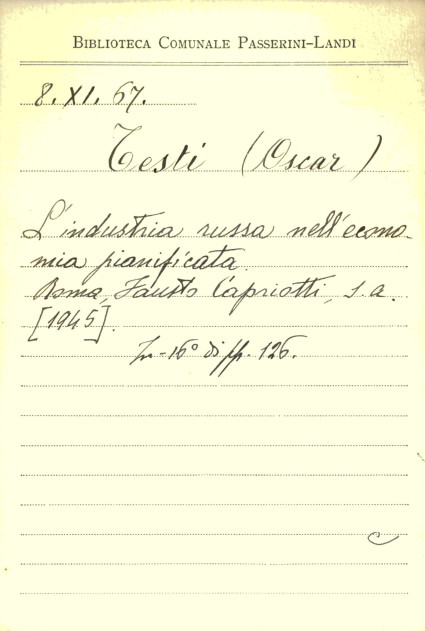 BIBLIOTECA COMUNALE PASSERINI-LANDI
8. XI. 67.
Testi (Oscar)
L'industria russa nell'econo-
mia pianificata.
Roma, Fausto Capriotti, s.a.
[1945].
In-16° di pp. 126.
C